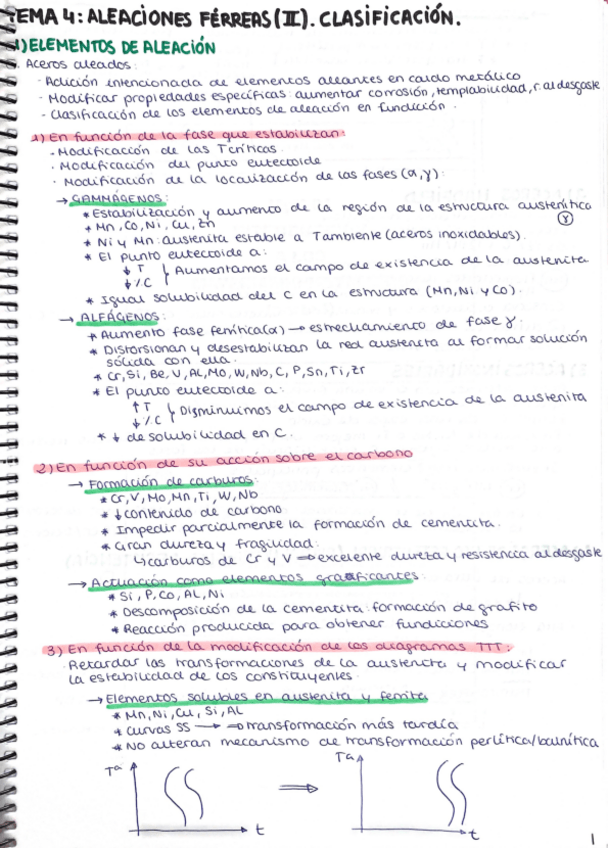 TEMA 4: ALEACIONES FÉRREAS (II). CLASIFICACIÓN.
1) ELEMENTOS DE ALEACIÓN
. Aceros aleados:
· Adición intencionada de elementos aleantes en caldo metálico
· Modificar propiedades específicas: aumentar corrosión, templabilidad, r. al desgaste
· Clasificación de los elementos de aleación en fundición.
1) En función de la fase que estabilizan:
· Modificación de las Tcríticas.
· Modificación del punto eutectoide
· Modificación de la localización de las fases (α, γ):
→ GAMMÁGENOS:
* Estabilización y aumento de la región de la estructura austenítica
γ
* Mn, Co, Ni, Cu, Zn
* Ni y Mn: austenita estable a Tambiente (aceros inoxidables).
* El punto eutectoide a:
↓ T
↓ % C } Aumentamos el campo de existencia de la austenita
* Igual solubilidad del C en la estructura (Mn, Ni y Co).
→ ALFÁGENOS:
* Aumento fase ferrítica (α) → estrechamiento de fase γ.
* Distorsionan y desestabilizan la red austenita al formar solución
sólida con ella.
* Cr, Si, Be, V, AL, Mo, W, Nb, C, P, Sn, Ti, Zr
* El punto eutectoide a:
↑ T
↓ % C } Disminuimos el campo de existencia de la austenita
* ↓ de solubilidad en C.
2) En función de su acción sobre el carbono
→ Formación de carburos:
* Cr, V, Mo, Mn, Ti, W, Nb
* ↓ contenido de carbono
* Impedir parcialmente la formación de cementita.
* Gran dureza y fragilidad:
↳ carburos de Cr y V ⇒ excelente dureza y resistencia al desgaste
→ Actuación como elementos grafificantes:
* Si, P, Co, AL, Ni
* Descomposición de la cementita: formación de grafito
* Reacción producida para obtener fundiciones
3) En función de la modificación de los diagramas TTT:
· Retardar las transformaciones de la austenita y modificar
la estabilidad de los constituyentes.
→ Elementos solubles en austenita y ferrita
* Mn, Ni, Cu, Si, AL
* Curvas SS → ⇒ transformación más tardía
* No alteran mecanismo de transformación perlítica/bainítica
Tª
t
⇒
Tª
t
1